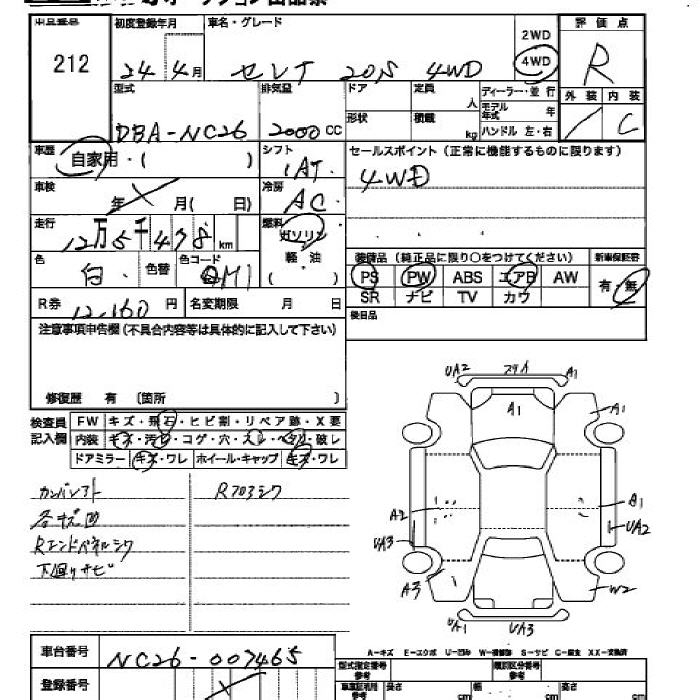 出品番号 初度登録年月 車名・グレード 2WD 評価点
212 24年4月 セレナ 20S 4WD 4WD R
型式 排気量 ドア 定員 人 ディーラー・並行 外装 内装
形状 積載 kg モデル年式 年
DBA-NC26 2000cc ハンドル 左・右 / C
車歴 自家用・( ) シフト セールスポイント (正常に機能するものに限ります)
1AT 4WD
車検 年 月( 日) 冷房 AC
走行 12万5千478km 燃料 ガソリン
色 白 色替 色コード QM1 軽・油 装備品 (純正品に限り○をつけてください) 新車保証書
( ) PS PW ABS エアB AW 有・無
R券 12,160円 名変期限 月 日 SR ナビ TV カワ
注意事項申告欄(不具合内容等は具体的に記入して下さい) 後日品
修復歴 有 〔箇所 〕
検査員記入欄 FW キズ・飛石・ヒビ割・リペア跡・X要
内装 キズ・汚レ・コゲ・穴・スレ・ヘタリ・破レ
ドアミラー キズ・ワレ ホイール・キャップ キズ・ワレ
R703シワ
各キズ凹
Rエンドパネルシワ
下廻りサビ
UA2 A1
A1 A1
A2 A1
UA2
UA3
A3 W2
UA1 UA3
A-キズ E-エクボ U-凹み W-補修跡 S-サビ C-腐食 XX-交換済
車台番号 NC26-007465 型式指定番号 類別区分番号
登録番号 長さ cm 幅 cm 高さ cm